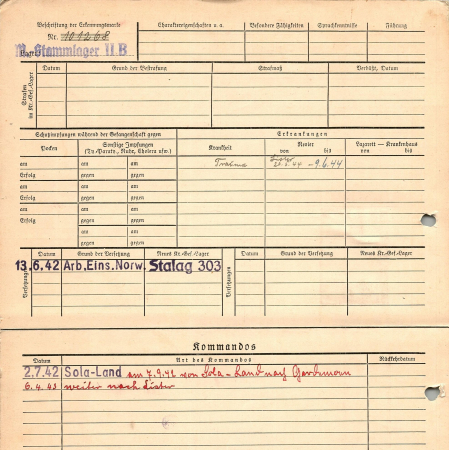 Beschriftung der Erkennungsmarke
Charaktereigenschaften u. a.
Besondere Fähigkeiten
Sprachkenntnisse
Führung
Nr. 101268
M. Stammlager II B
Lager
Strafen im Kr.-Gef.-Lager
Datum
Grund der Bestrafung
Strafmaß
Verbüßt, Datum
Schutzimpfungen während der Gefangenschaft gegen
Erkrankungen
Pocken
Sonstige Impfungen
(Ty.-Paraty., Ruhr, Cholera usw.)
Krankheit
Revier
von bis
Lazarett — Krankenhaus
von bis
am am
Erfolg gegen
am am
Erfolg gegen
am am
Erfolg gegen
am
gegen
am
gegen
Lister
9.6.44
Versetzungen
Datum
Grund der Versetzung
Neues Kr.-Gef.-Lager
Versetzungen
Datum
Grund der Versetzung
Neues Kr.-Gef.-Lager
13.6.42 Arb.Eins.Norw. Stalag 303
Kommandos
Datum
Art des Kommandos
Rückkehrdatum
2.7.42 Sola-Land am 7.9.42 von Sola-Land nach
6.4.43 weiter nach Lister